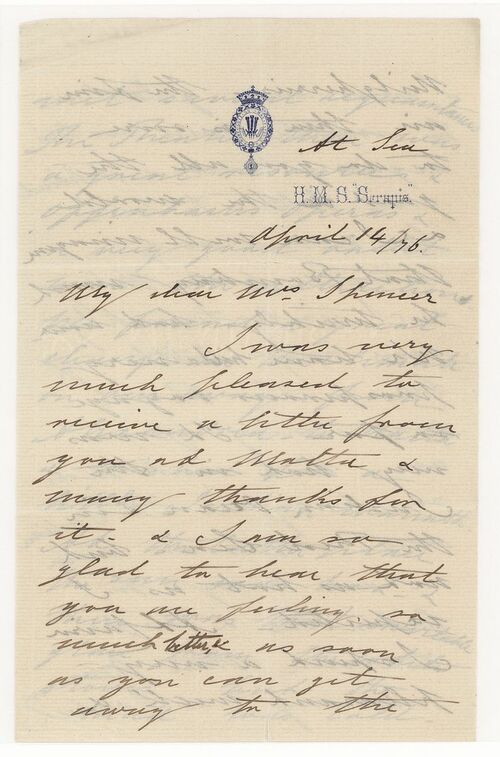 At Sea
H.M.S. "Serapis".
April 14/76.
My dear Mrs. Spencer
I was very
much pleased to
receive a letter from
you at Malta &
many thanks for
it - & I am so
glad to hear that
you are feeling so
much better, & as soon
as you can get
away to the